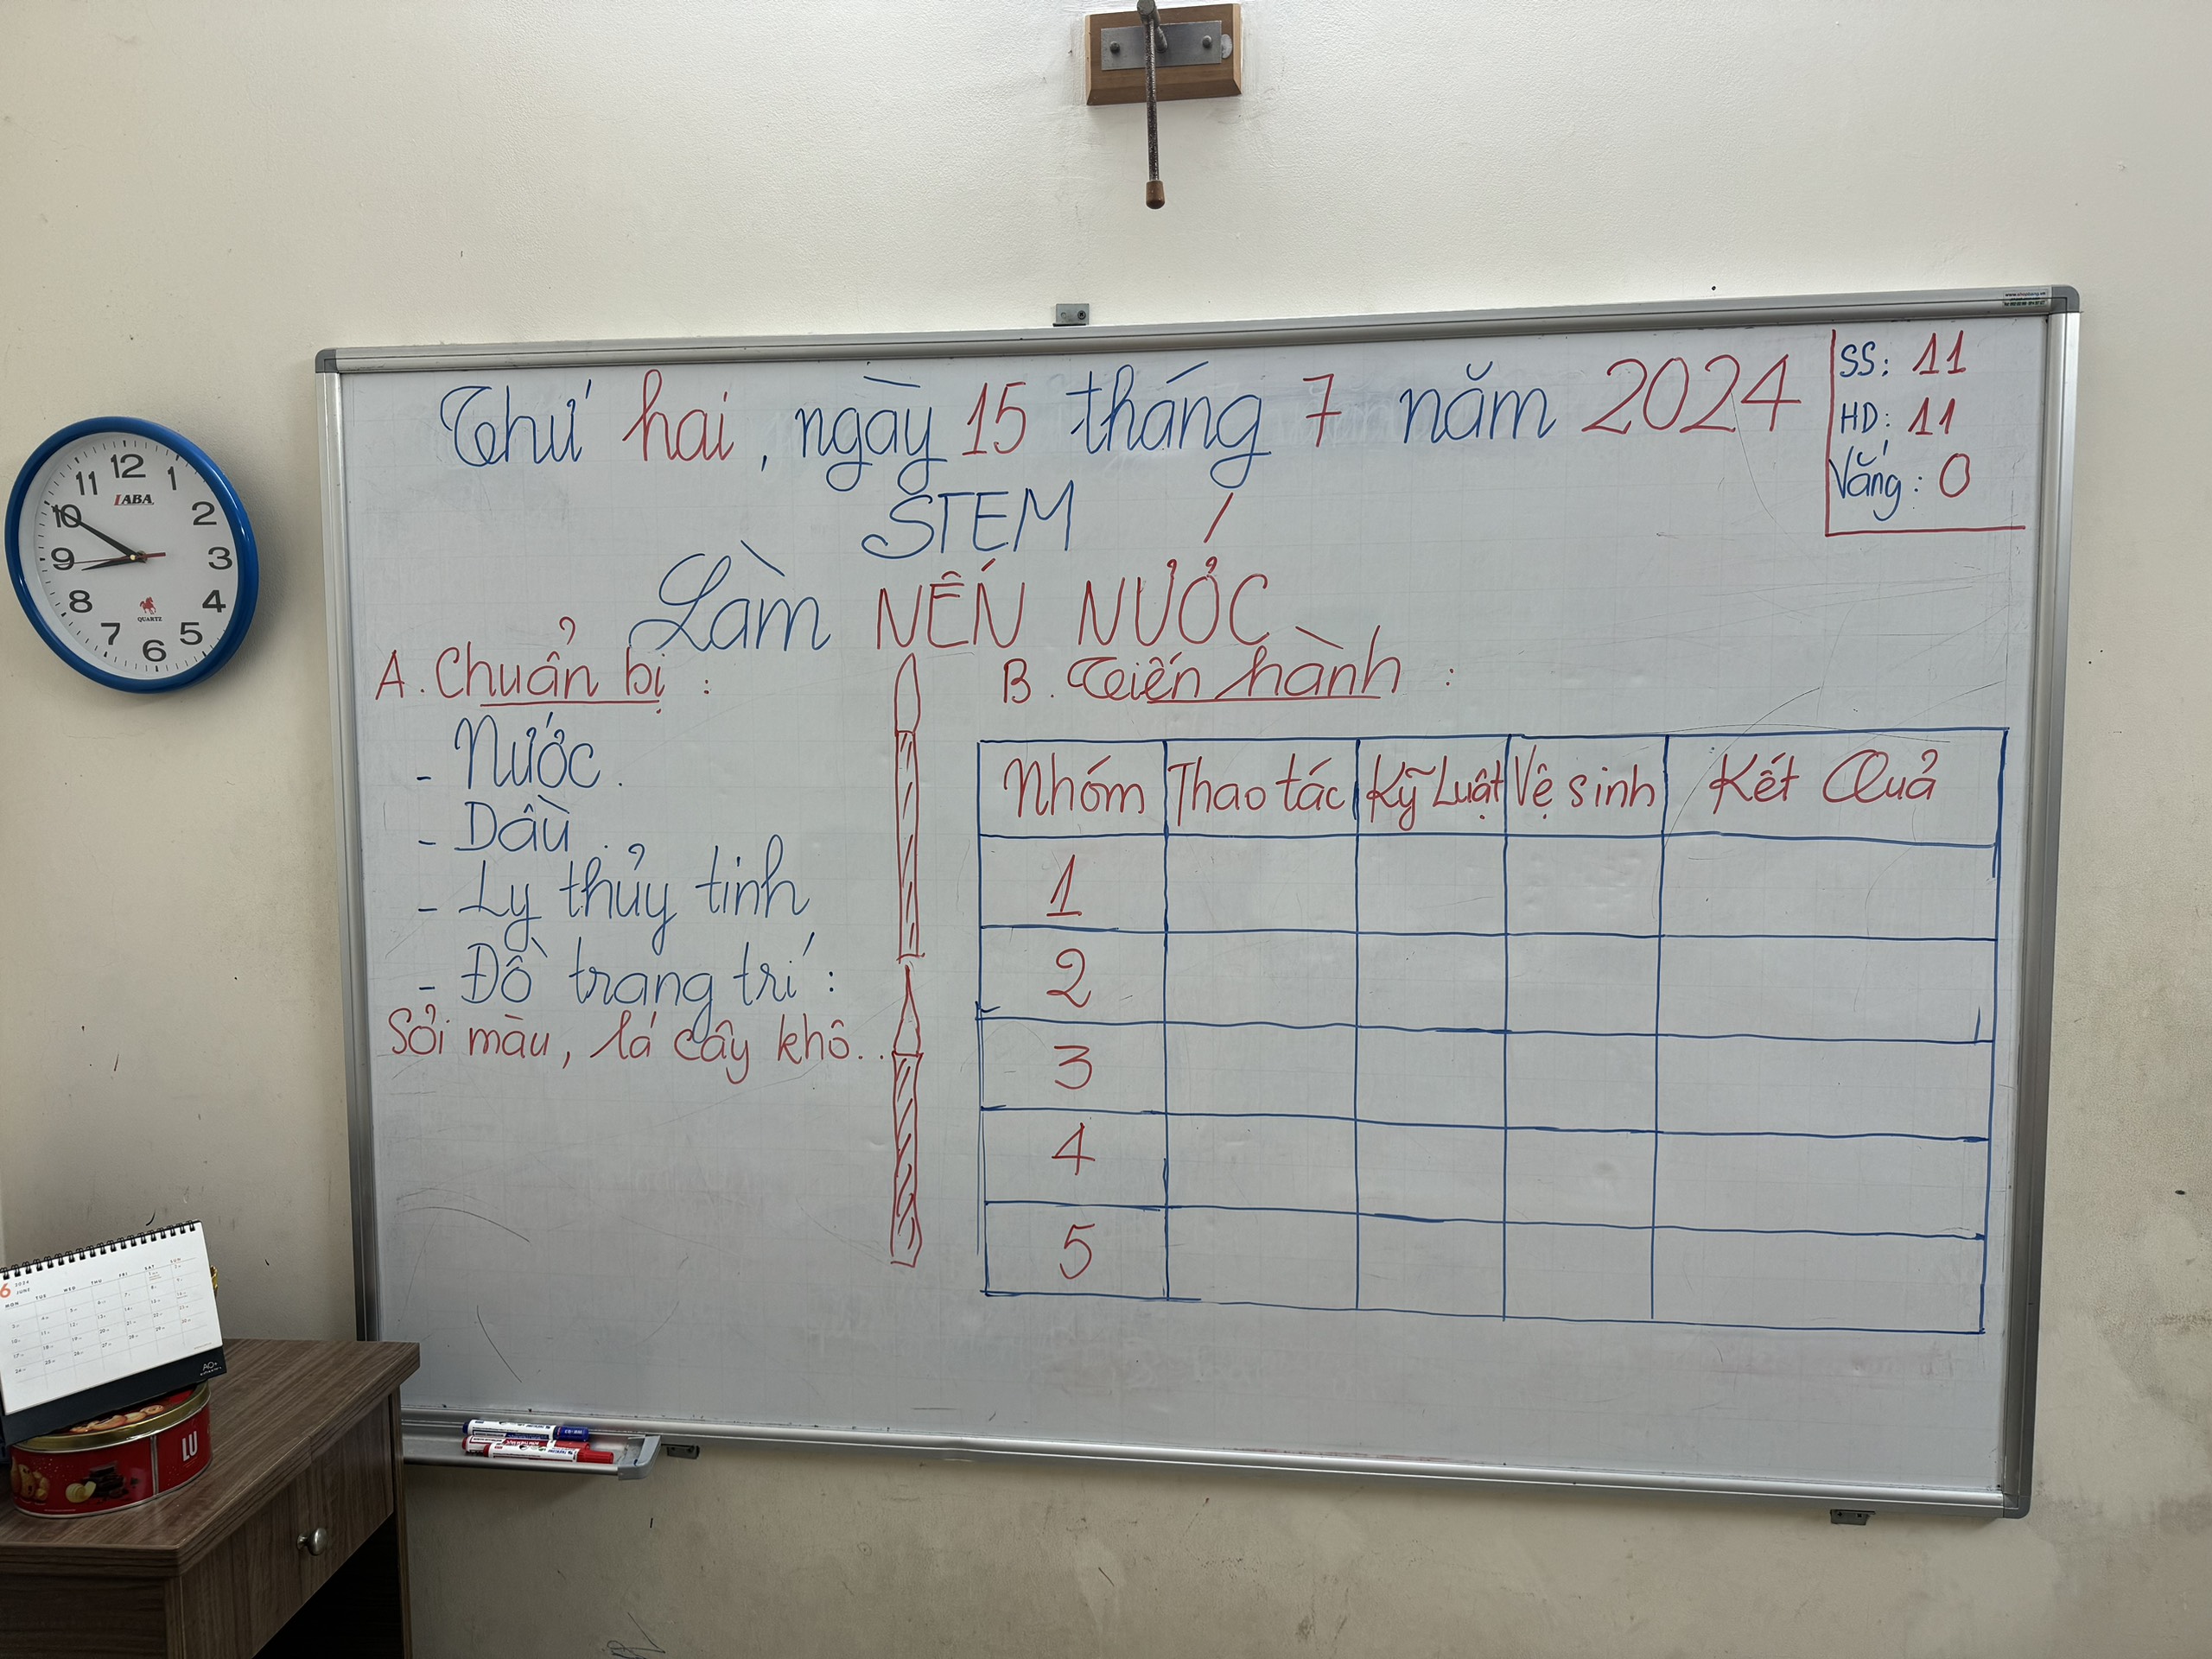 Thứ hai, ngày 15 tháng 7 năm 2024
SS: 11
HD: 11
Vắng: 0
STEM
Làm NẾN NƯỚC
A. Chuẩn bị:
- Nước.
- Dầu.
- Ly thủy tinh
- Đồ trang trí:
Sỏi màu, lá cây khô...
B. Tiến hành:
Nhóm Thao tác Kỹ Luật Vệ sinh Kết Quả
1
2
3
4
5
12
1
2
3
4
5
6
7
8
9
10
11
ABA
QUARTZ
6 2024
JUNE
MON TUE WED THU FRI SAT SUN
LU